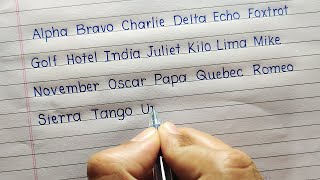 Alpha Bravo Charlie Delta Echo Foxtrot
Golf Hotel India Juliet Kilo Lima Mike
November Oscar Papa Quebec Romeo
Sierra Tango U